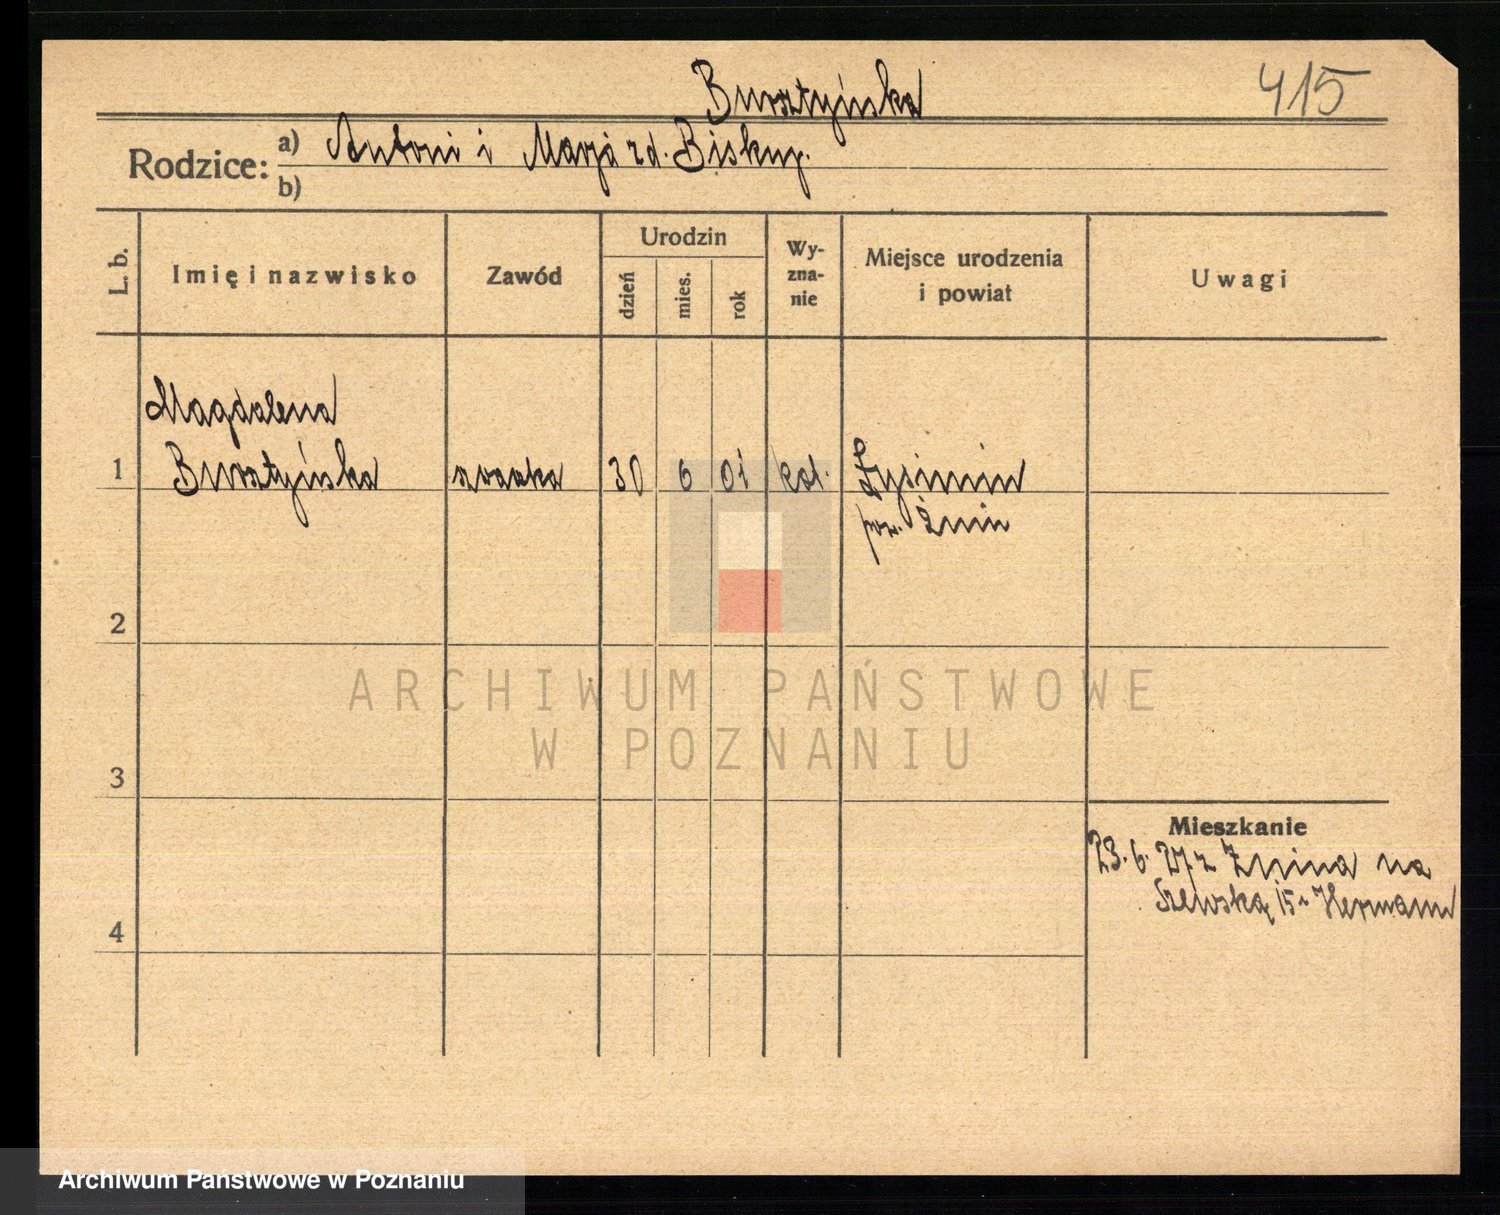 Bursztyńska
415
Rodzice: a) Antoni i Marja rd. Biskup.
b)
L. b.
Imię i nazwisko
Zawód
Urodzin
dzień
mies.
rok
Wy-
zna-
nie
Miejsce urodzenia
i powiat
Uwagi
Magdalena
1 Bursztyńska 30 6 01 kat.
pow. Żnin
2
3
4
Mieszkanie
23. 6. 27 z Żnina na
Szewską 15 Hermann
ARCHIWUM PAŃSTWOWE
W POZNANIU
Archiwum Państwowe w Poznaniu